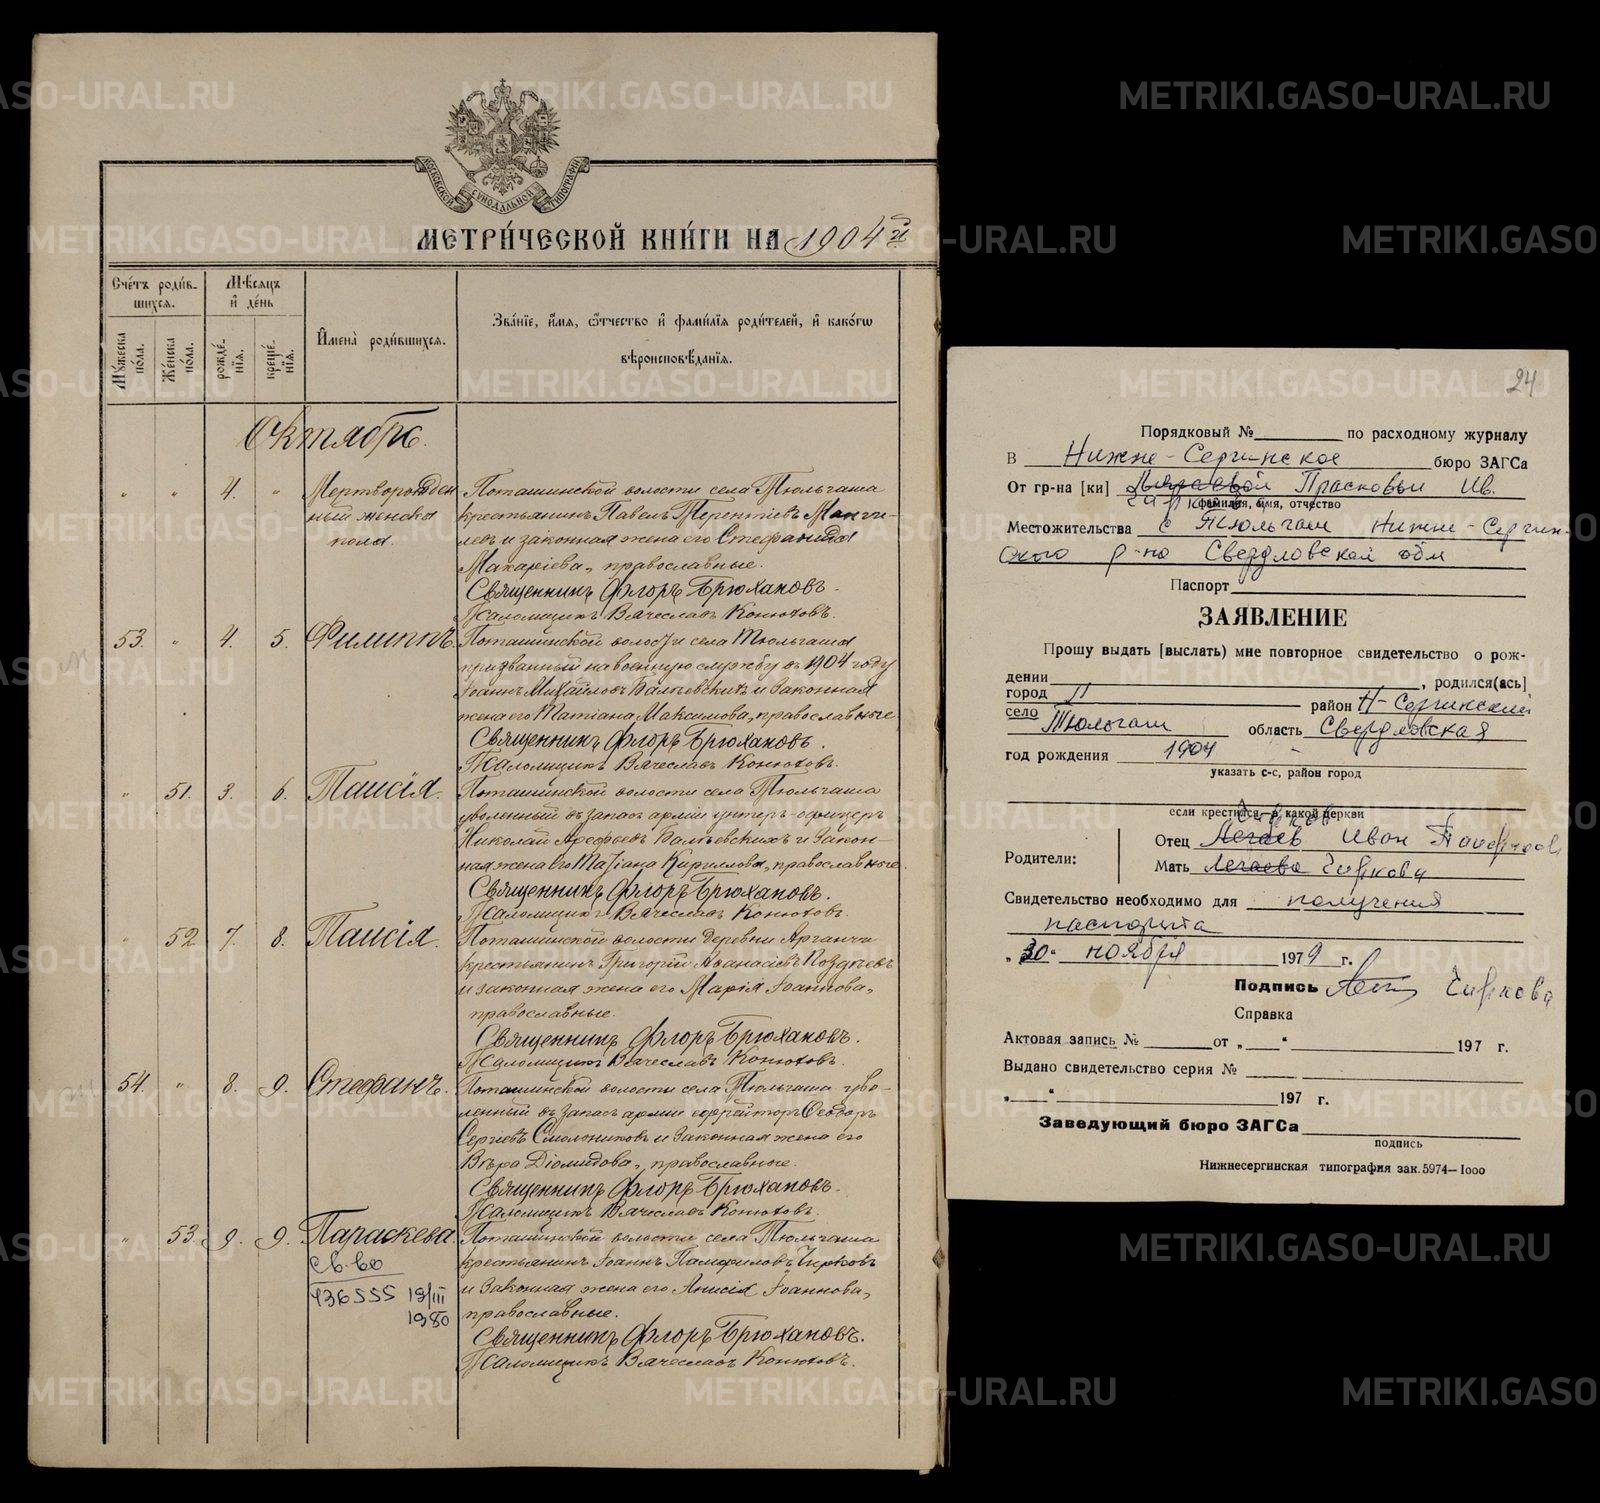 МОСКОВСКОЙ СѴНОДАЛЬНОЙ ТИПОГРАФІИ
МЕТРИ́ЧЕСКОЙ КНИ́ГИ НА 1904 й
Сче́тъ роди́в-
шихсѧ.
Мѣ́сѧцъ
и҆ де́нь
И҆мена̀ роди́вшихсѧ.
Зва́нїе, и҆́мѧ, ѻ҆́тчество и҆ фами́лїѧ роди́телей, и҆ како́гѡ
вѣроисповѣ́данїѧ.
Мꙋ́жеска по́ла.
Же́нска по́ла.
рожде́-нїѧ.
креще́-нїѧ.
Октябрь.
" " 4. " Мертворожден Поташинской волости села Тюльгаша
ный женска крестьянинъ Павелъ Терентіевъ
пола. левъ и законная жена его Стефанида
Макаріева, православные.
Священникъ Флоръ Брюхановъ.
Псаломщикъ Вячеславъ Конюховъ.
53. " 4. 5. Филиппъ. Поташинской волости села Тюльгаша
призванный на военную службу въ 1904 году
Іоаннъ Михайловъ и законная
жена его Татіана Максимова, православные
Священникъ Флоръ Брюхановъ.
Псаломщикъ Вячеславъ Конюховъ.
" 51. 3. 6. Таисія. Поташинской волости села Тюльгаша
уволенный въ запасъ арміи унтеръ-офицеръ
Николай Арефьевъ и закон-
ная жена его Татіана Кириллова, православные.
Священникъ Флоръ Брюхановъ.
Псаломщикъ Вячеславъ Конюховъ.
" 52 7. 8. Таисія. Поташинской волости деревни
крестьянинъ Григорій Аѳанасіевъ
и законная жена его Марія Іоаннова,
православные.
Священникъ Флоръ Брюхановъ.
Псаломщикъ Вячеславъ Конюховъ.
54. " 8. 9. Стефанъ. Поташинской волости села Тюльгаша уво-
ленный въ запасъ арміи ефрейторъ Ѳеодоръ
Сергіевъ и законная жена его
Вѣра Діомидова, православные.
Священникъ Флоръ Брюхановъ.
Псаломщикъ Вячеславъ Конюховъ.
" 53. 9. 9. Параскева. Поташинской волости села Тюльгаша
св-во крестьянинъ Іоаннъ Памфиловъ Чирковъ
436555 19/III и законная жена его Анисія Іоаннова,
1980 православные.
Священникъ Флоръ Брюхановъ.
Псаломщикъ Вячеславъ Конюховъ.
24
Порядковый № по расходному журналу
В Нижне-Сергинское бюро ЗАГСа
От гр-на [ки] Прасковьи Ив.
Чирковой фамилия, имя, отчество
Местожительства с Тюльгаш Нижне-Сергин-
ского р-на Свердловской обл
Паспорт
ЗАЯВЛЕНИЕ
Прошу выдать [выслать) мне повторное свидетельство о рож-
дении , родился(ась]
город район Н-Сергинский
село Тюльгаш область Свердловская
год рождения 1904
указать с-с, район город
если крестился, в какой церкви
Чирков
Родители:
Отец Легаев Иван Панфилов
Мать Легаева Чиркова
Свидетельство необходимо для получения
паспорта
„30" ноября 1979 г.
Подпись Чиркова
Справка
Актовая запись № от „ " 197 г.
Выдано свидетельство серия №
„ " 197 г.
Заведующий бюро ЗАГСа
подпись
Нижнесергинская типография зак.5974—1000
METRIKI.GASO-URAL.RU